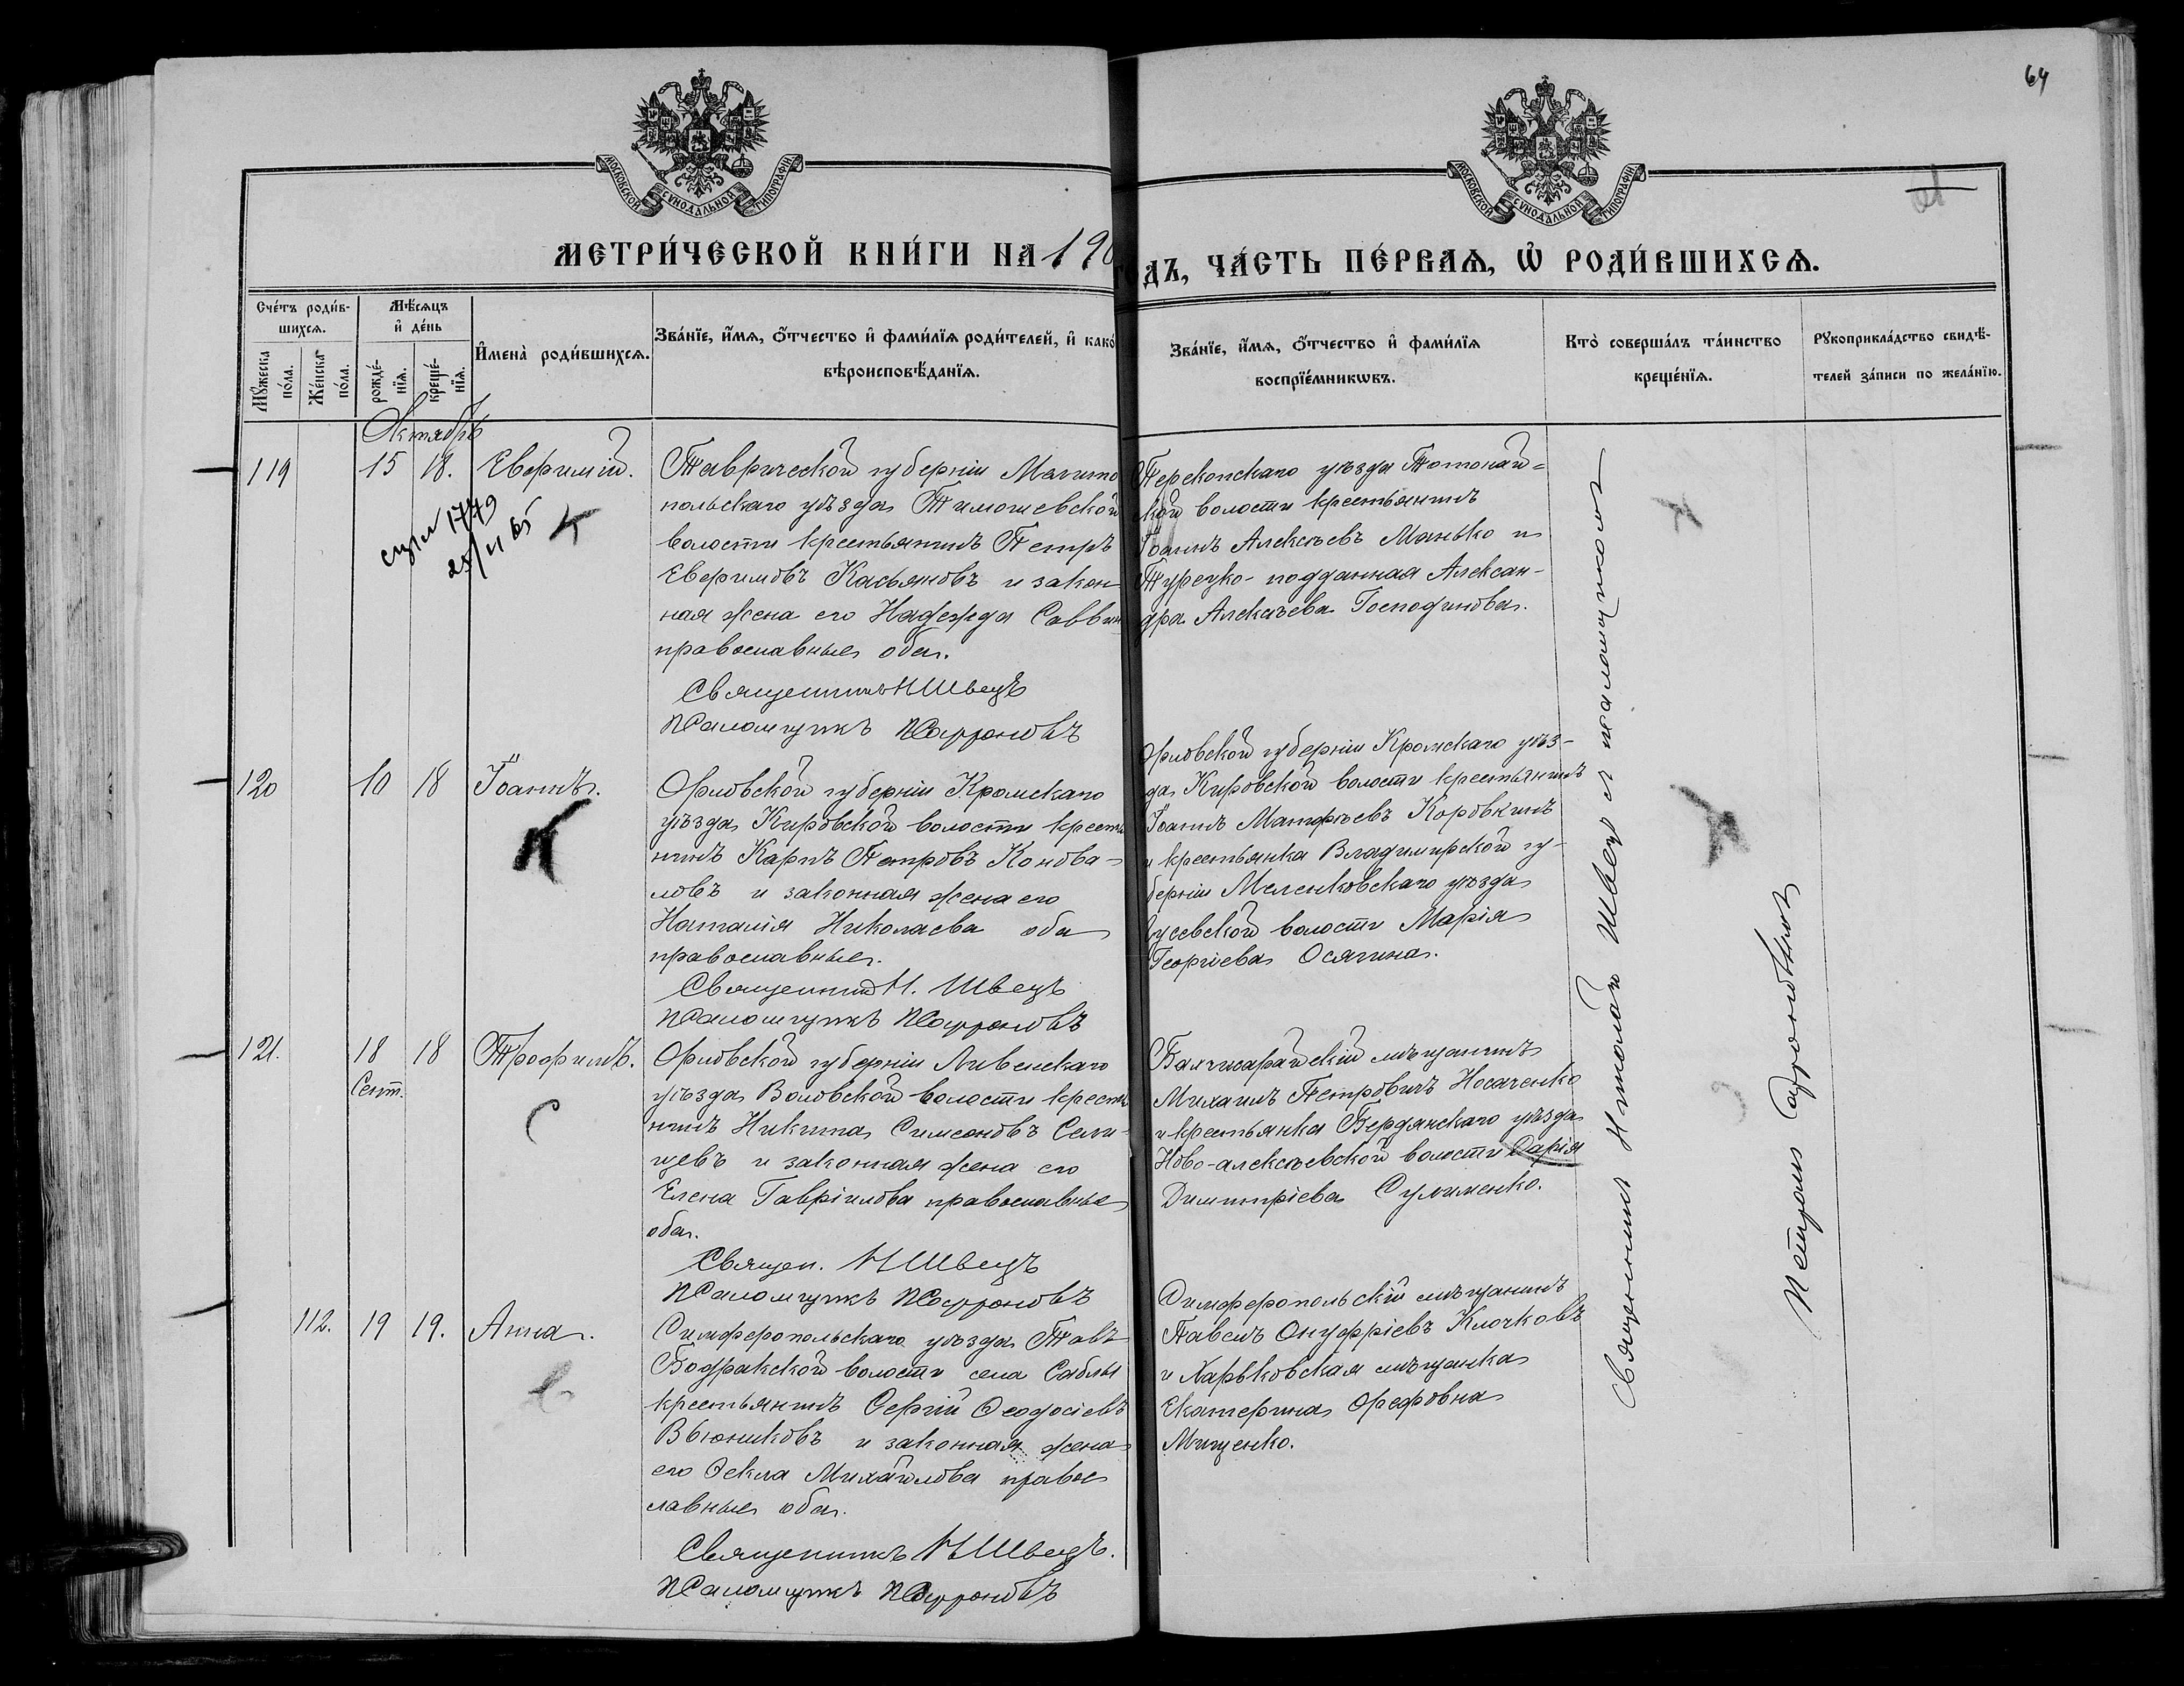 64
МОСКОВСКОЙ СѴНОДАЛЬНОЙ ТИПОГРАФІИ
МОСКОВСКОЙ СѴНОДАЛЬНОЙ ТИПОГРАФІИ
МЕТРИ́ЧЕСКОЙ КНИ́ГИ НА 190
ДЪ, ЧА́СТЬ ПЕ́РВАѦ, Ѡ҆ РОДИ́ВШИХСѦ.
Сче́тъ роди́в-
шихсѧ.
Мꙋ́жеска по́ла.
Же́нска по́ла.
Мѣ́сѧцъ
и҆ де́нь
рожде́-
нїѧ.
креще́-
нїѧ.
И҆мена̀ роди́вшихсѧ.
Зва́нїе, и҆́мѧ, ѻ҆́тчество и҆ фами́лїѧ роди́телей, и҆ како́
вѣроисповѣ́данїѧ.
Зва́нїе, и҆́мѧ, ѻ҆́тчество и҆ фами́лїѧ
воспрїе́мникѡвъ.
Кто̀ соверша́лъ та́инство
креще́нїѧ.
Рꙋкоприкла́дство свидѣ́-
телей за́писи по жела́нїю.
Октябрь
119 15 18. Евфимій.
1779
Таврической губерніи Мелито
польскаго уѣзда Тимошевской
волости крестьянинъ Петръ
Евфимовъ Касьяновъ и закон
ная жена его Надежда Саввин
православные оба.
Священникъ Н Швецъ
Псаломщикъ П Сафроновъ
Перекопскаго уѣзда Тотонай-
кой волости крестьянинъ
Іоаннъ Алексѣевъ Манько и
Турецко-подданная Алексан-
дра Алексѣева Господинова.
120 10 18 Іоаннъ.
К
Орловской губерніи Кромскаго
уѣзда Кировской волости крестья
нинъ Карпъ Петровъ Конова-
ловъ и законная жена его
Наталія Николаева оба
православные.
Священникъ Н. Швецъ
Псаломщикъ П Сафроновъ
Орловской губерніи Кромскаго уѣз-
да Кировской волости крестьянинъ
Іоаннъ Матфѣевъ Коровкинъ
и крестьянка Владимирской гу-
берніи Меленковскаго уѣзда
усевской волости Марія
Георгіева Осягина.
121. 18 18 Трофимъ.
Сент.
С
Орловской губерніи Ливенскаго
уѣзда Воловской волости крестья
нинъ Никита Симеоновъ Сели-
щевъ и законная жена его
Елена Гавріилова православные
оба.
Священ. Н Швецъ
Псаломщикъ П Сафроновъ
Бахчисарайскій мѣщанинъ
Михаилъ Петровичъ Носаченко
и крестьянка Бердянскаго уѣзда
Ново-алексѣевской волости Дарія
Димитріева Сулименко.
112. 19 19. Анна.
Симферопольскаго уѣзда Тавъ
Бодракской волости села Саблы
крестьянинъ Сергій Ѳеодосіевъ
Вьюниковъ и законная жена
его Ѳекла Михайлова правос
лавные оба.
Священникъ Н Швецъ.
Псаломщикъ П Сафроновъ
Симферопольскій мѣщанинъ
Павелъ Онуфріевъ Клочковъ
и Харьковская мѣщанка
Екатерина Орефовна
Мищенко.
Священникъ Николай Швецъ съ псаломщикомъ
Петромъ Сафроновымъ